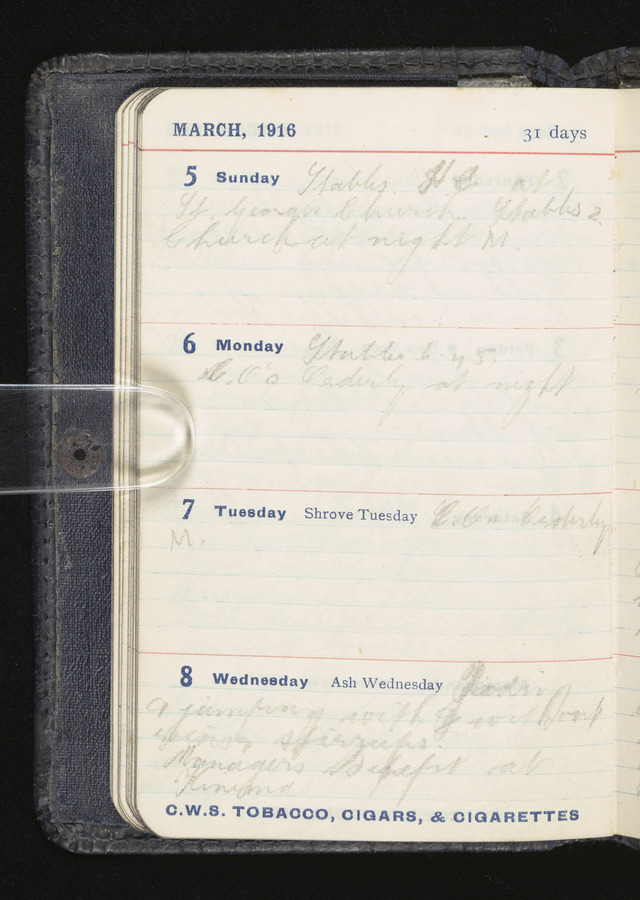 MARCH, 1916 31 days
5 Sunday Stables. at
St. Georges Church. Stables &
Church at night M.
6 Monday Stables
C.O's Orderly at night
7 Tuesday Shrove Tuesday C.O's Orderly
M.
8 Wednesday Ash Wednesday Riding
& jumping with & without
reins & stirrups.
Manager's Benefit at
C.W.S. TOBACCO, CIGARS, & CIGARETTES